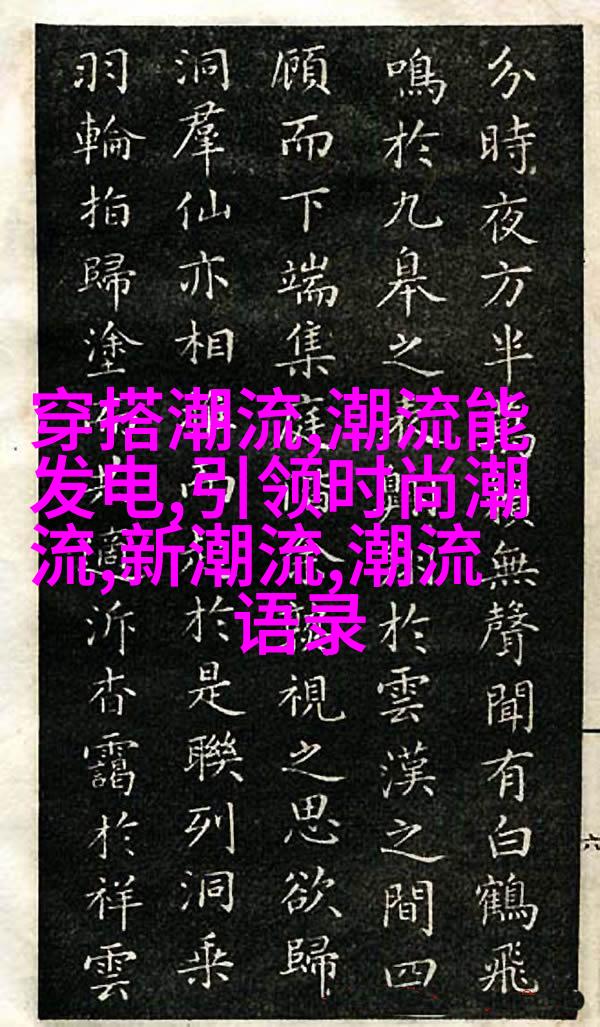 穿搭潮流,潮流能
发电,引领时尚潮
流,新潮流,潮流
语录
分時夜方半無聲聞有白鶴飛
鳴於九皋之表於雲漢之間四
顧而下端集庭視之思欲歸
洞羣仙亦相而於是聯列洞乘
羽輪拍歸塗泝杳靄於祥雲
六